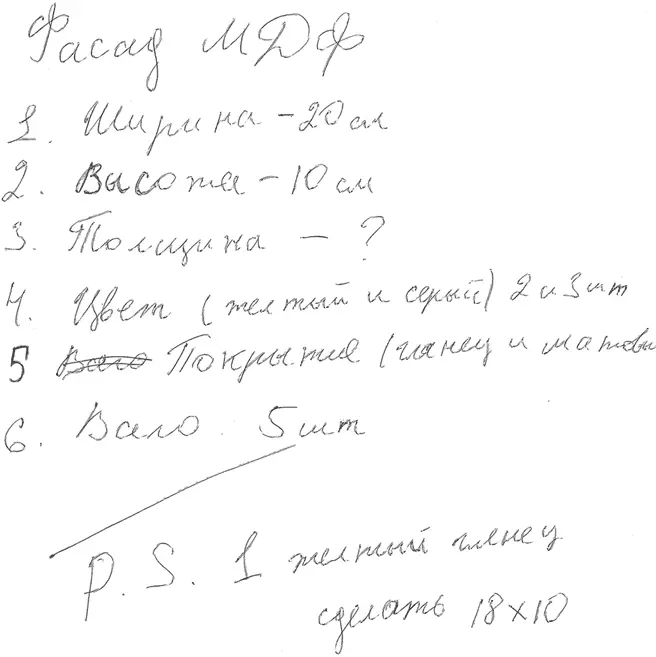 Фасад МДФ
1. Ширина - 20 см
2. Высота - 10 см
3. Толщина - ?
4. Цвет (желтый и серый) 2 и 3 шт
5 Покрытие (глянец и матовы
6. Вало 5 шт
P.S. 1 желтый глянец
сделать 18х10